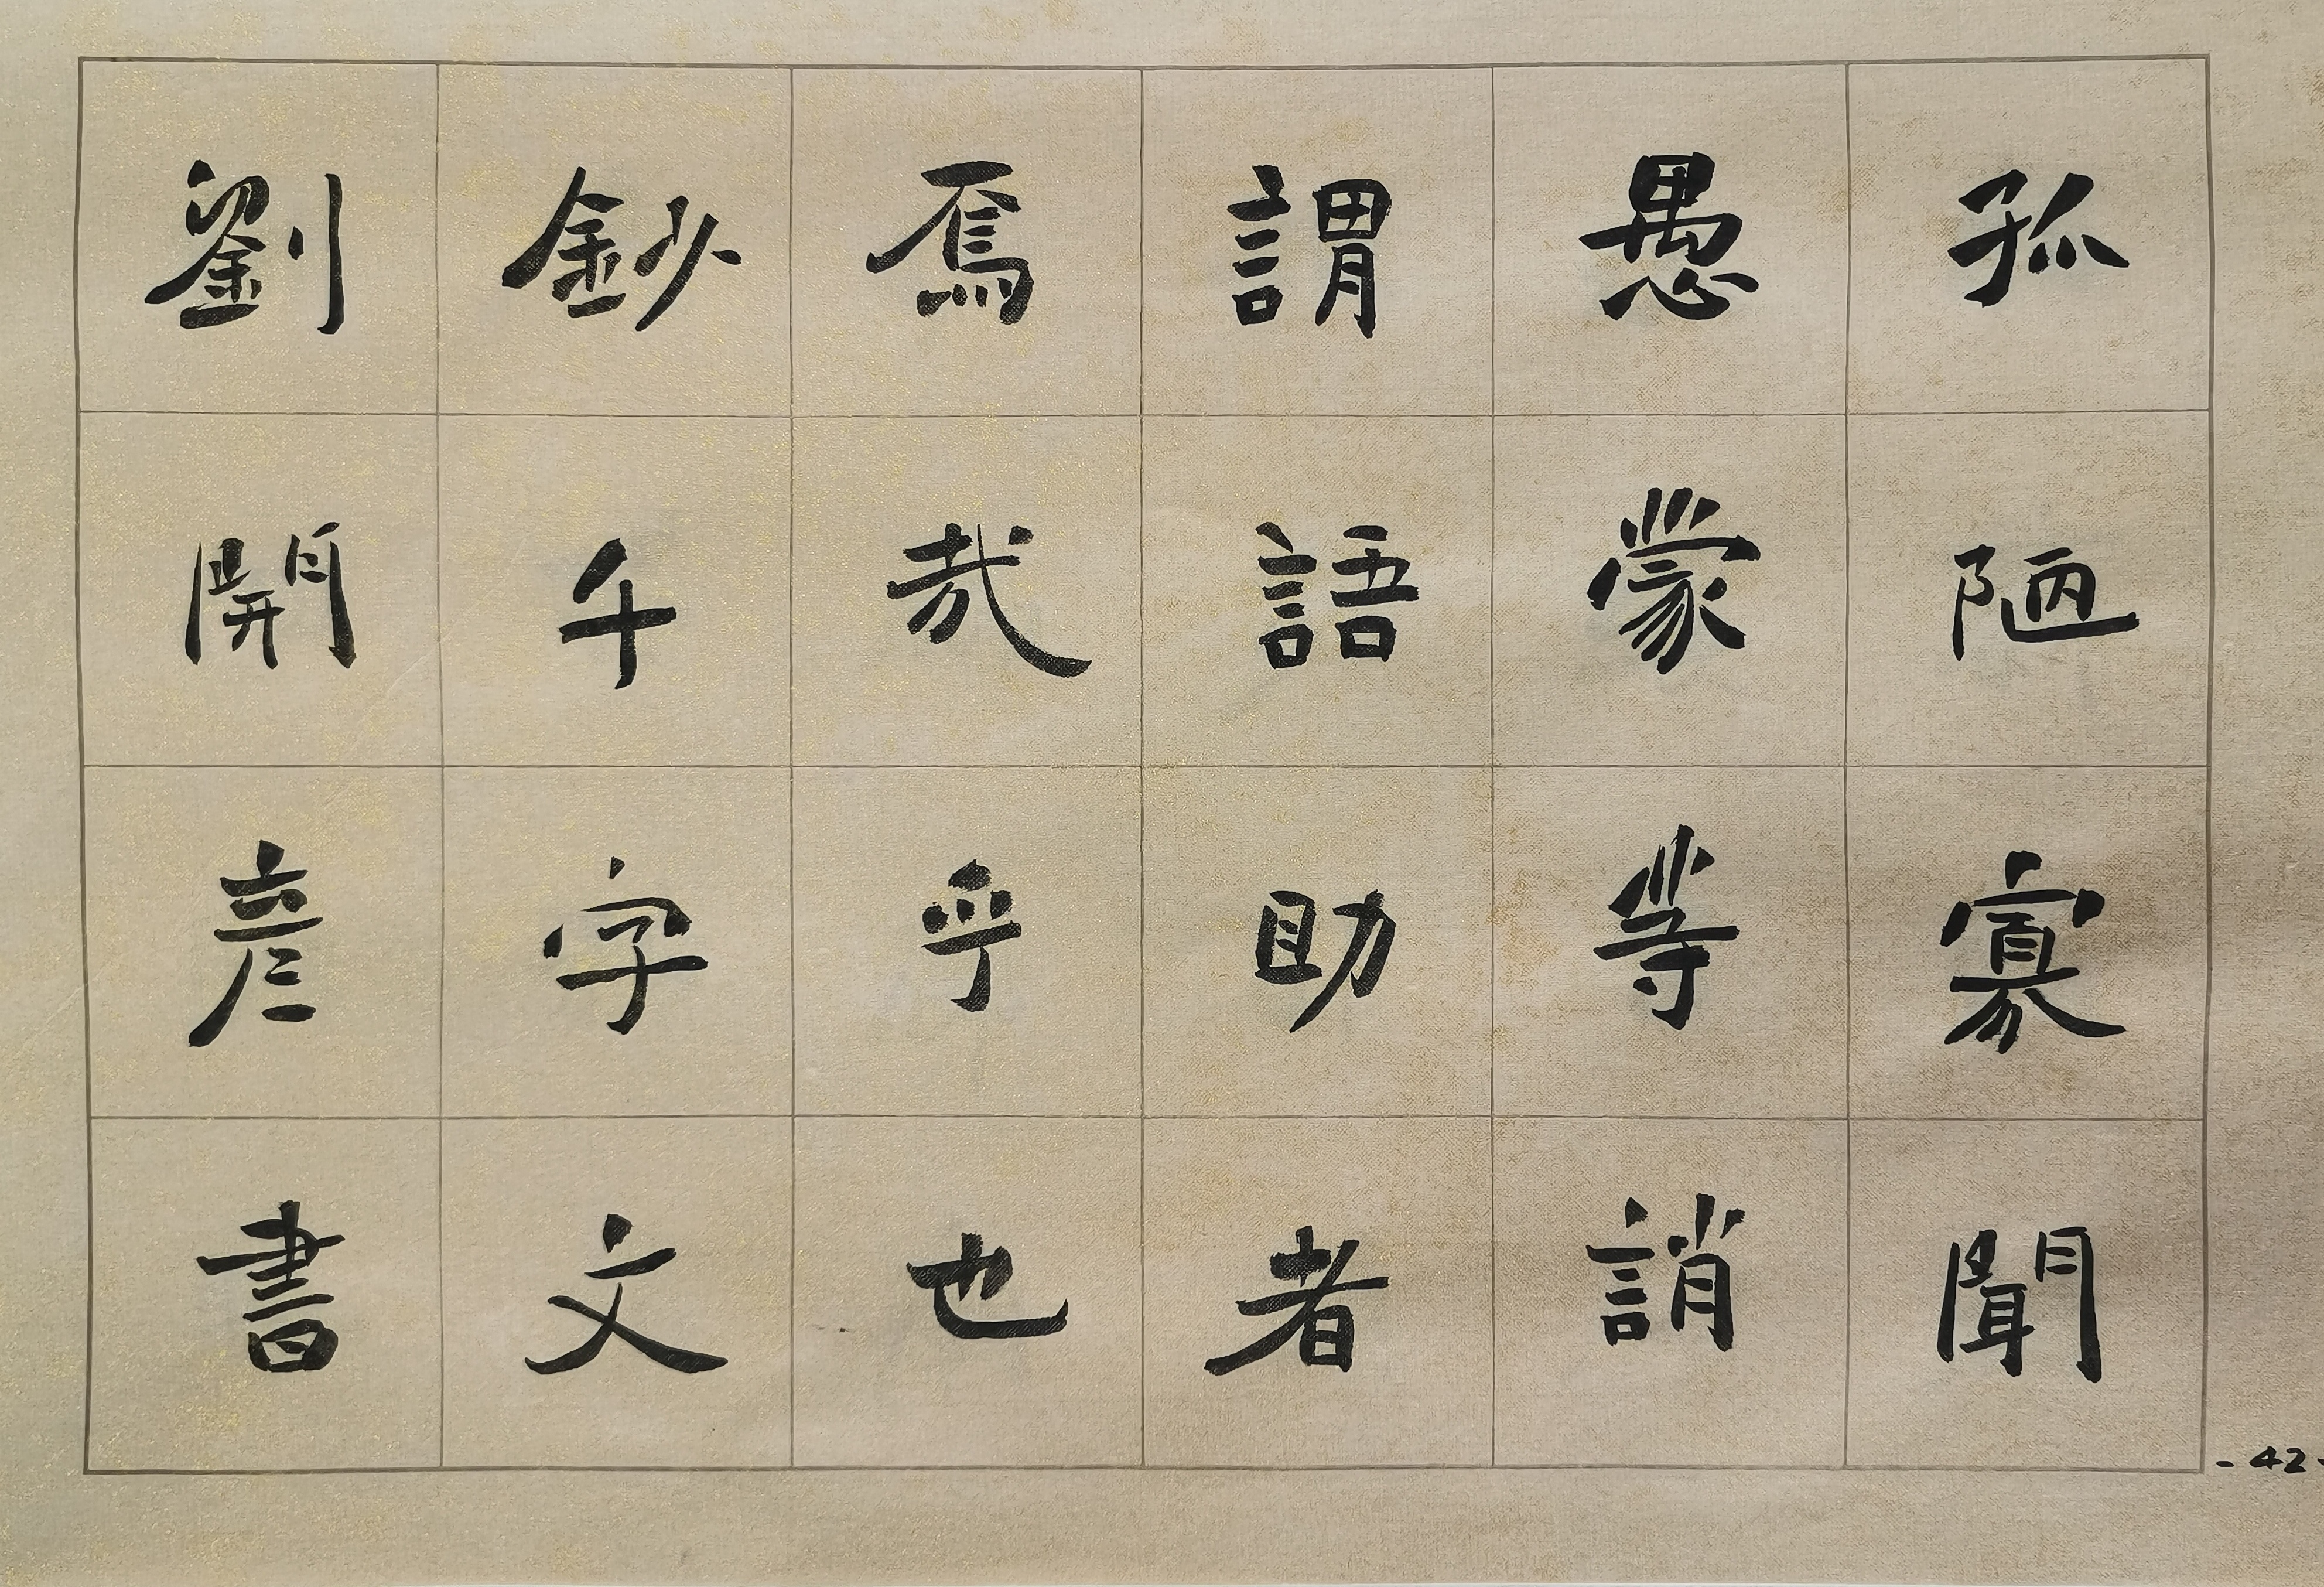 孤陋寡聞
愚蒙等誚
謂語助者
焉哉乎也
鈔千字文
劉開彦書
-42-